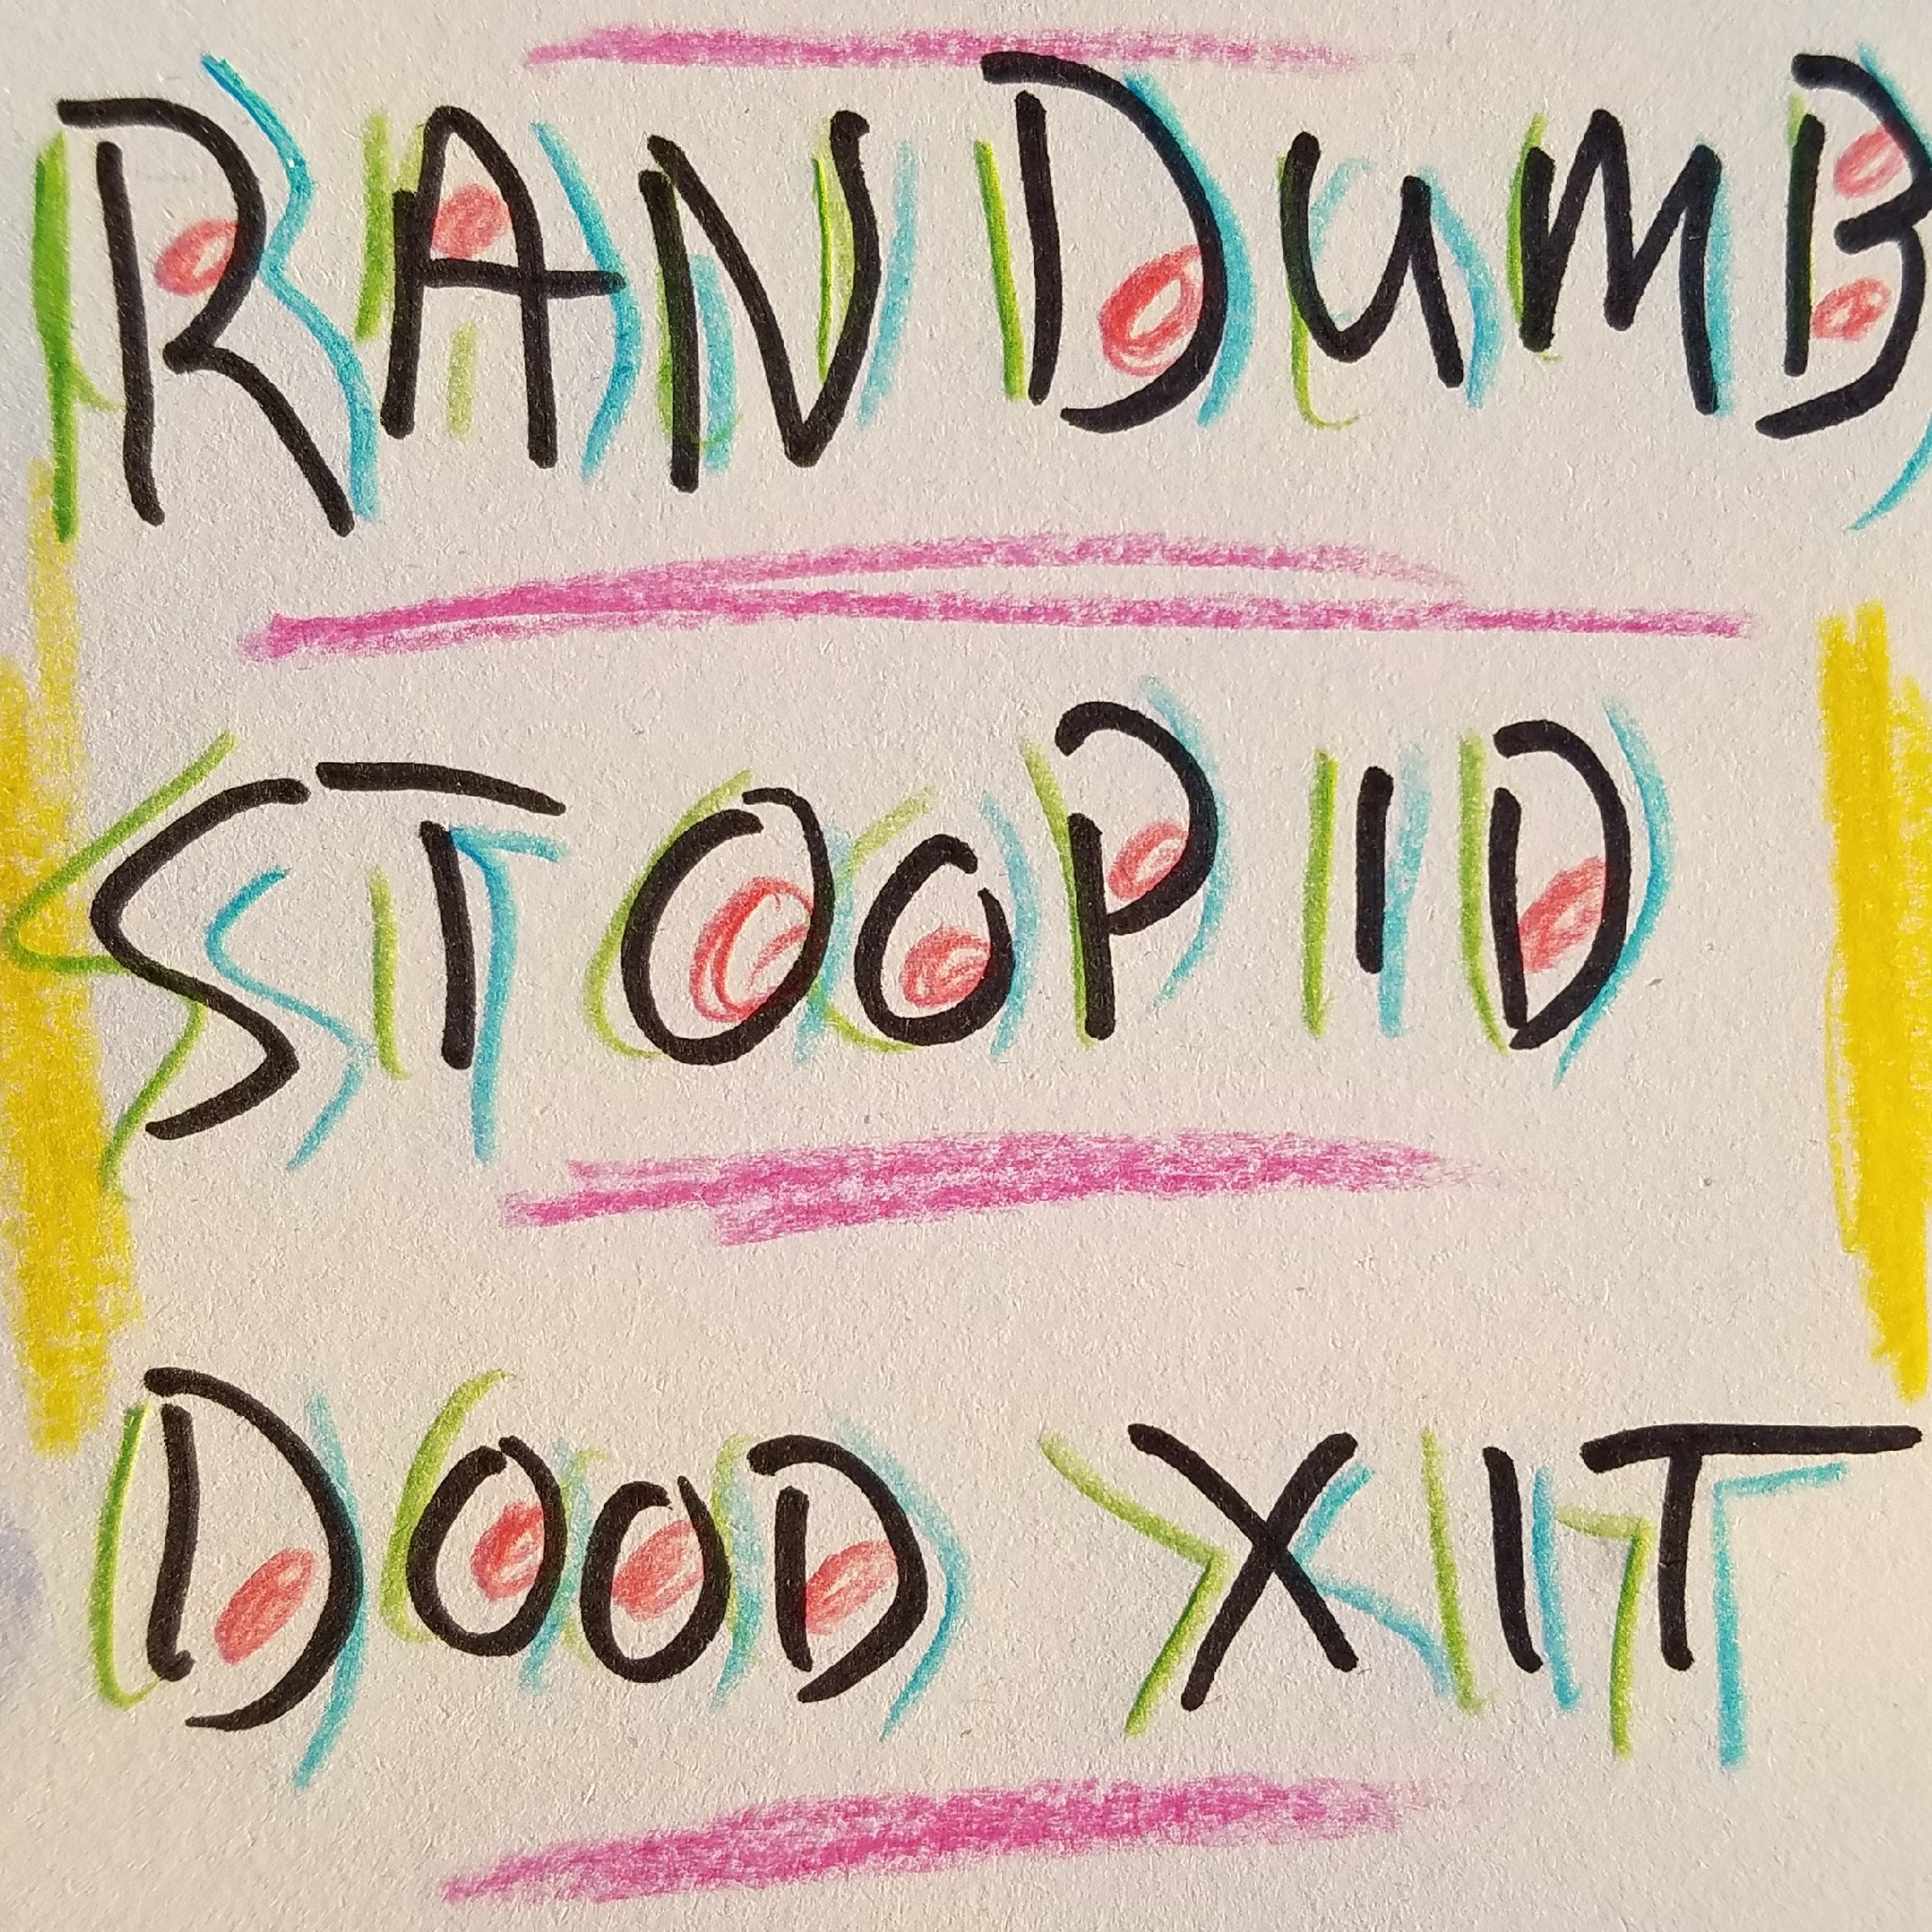 RANDUMB
STOOPID
DOOD XIT